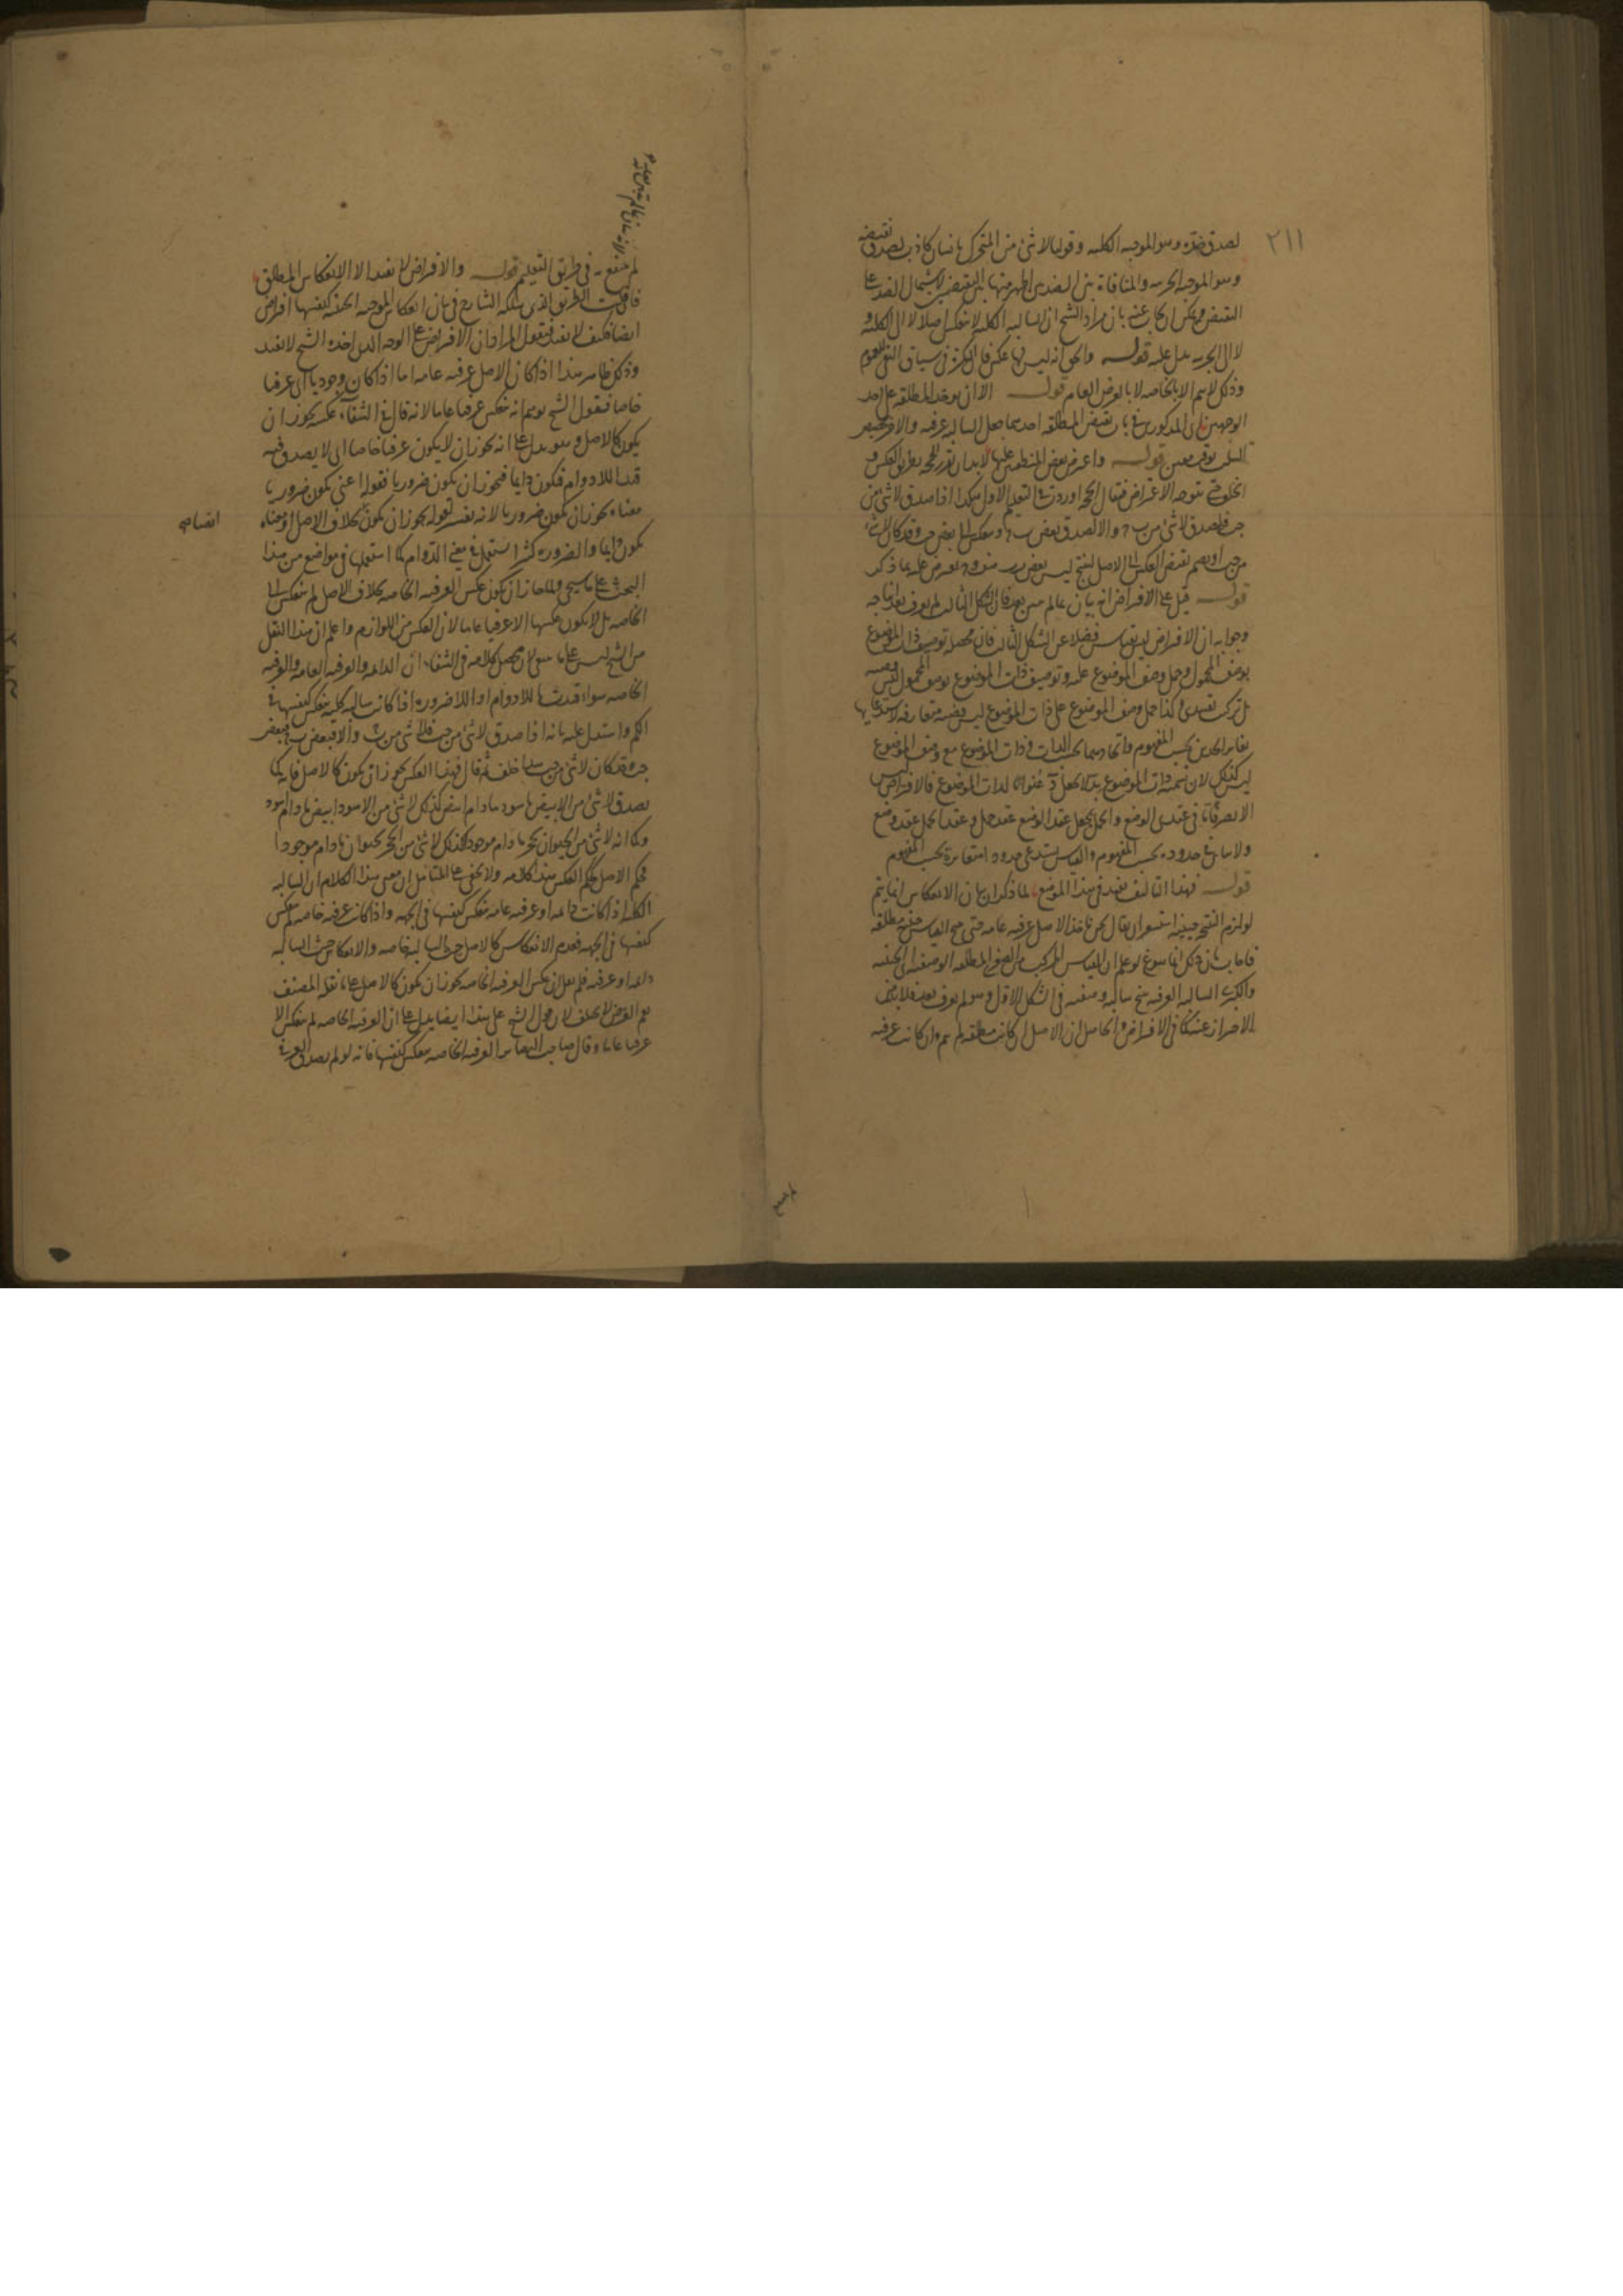 ٢١١
لصدق ضده وهو الموجبه الكليه وقولنا لا شئ من المتحرك بانسان كاذب لصدق نقيضه
وهو الموجبه الجزييه والمنافاة بين الضدين اظهر منها بين النقيضين لاشتمال الضد على
النقيض ويمكن ان يجاب عنه بان مراد الشيخ ان السالبه الكليه لا تنعكس اصلا لا الى الكليه و
لا الى الجزييه يدل عليه قوله والحق انه ليس لها عكس فان النكرة فى سياق النفى للعموم
وذلك لا يتم الا بالخاصه لا بالعرض العام قوله الا ان يوخذ المطلقه على احد
الوجهين اى المذكورين فى باب نقيض المطلقه احدهما جعل السالبه عرفيه والاخر تخصيص
السلب بوقت معين قوله واعترض بعض المنطقيين عليها لا بد ان نقرر الحجه بطريق العكس و
الخلف حتى يتوجه الاعتراض فيقال الحجه اوردت فى التعليم الاول هكذا اذا صدق لا شئ من
ج ب فليصدق لا شئ من ب ج والا لصدق بعض ب ج وينعكس الى بعض ج ب وقد كان لا شئ
من ج ب او يضم نقيض العكس الى الاصل لينتج ليس بعض ب ب
قوله قيل على الافتراض انه بيان بما لم يبين بعد فان الشكل الثالث لم يعرف بعد انتاجه
وجوابه ان الافتراض ليس بقياس فضلا عن الشكل الثالث فان محصله توصيف ذات الموضوع
بوصف المحمول وحمل وصف الموضوع عليه وتوصيف ذات الموضوع بوصف المحمول ليس قضيه
بل تركيب تقييدى وكذا حمل وصف الموضوع على ذات الموضوع ليس قضيه متعارفه لاستدعايها
تغاير الحدين بحسب المفهوم واتحادهما بحسب الذات وذات الموضوع مع وصف الموضوع
ليس كذلك لان تسمية ذات الموضوع بد لا يجعل د عنوانا لذات الموضوع فالافتراض ليس
الا تصرفا ما فى عقدى الوضع والحمل بجعل عقد الوضع عقد حمل وعقد الحمل عقد وضع
ولا تباين فى حدوده بحسب المفهوم والقياس يستدعى حدودا متغايرة بحسب المفهوم
قوله فهذا التاليف يفيد فى هذا الموضع لما ذكر ان بيان الانعكاس انما يتم
لو لزم النتيجه حينيه استشعر ان يقال نحن ناخذ الاصل عرفيه عامه حتى ينتج القياس حينيه مطلقه
فاجاب بان ذلك انما يسوغ لو علم ان القياس المركب من الصغرى المطلقه الوصفيه اى الحينيه
والكبرى السالبه العرفيه ينتج سالبه وصفيه فى الشكل الاول وهو لم يعرف بعد فلا بد من
الاحتراز عنه كما فى الافتراض والحاصل ان الاصل ان كانت مطلقه لم يتم وان كانت عرفيه
لم ينتفع به فى طريق التعليم قوله والافتراض لا يفيد الا الانعكاس المطلق
فان قلت الطريق الذى سلكه الشارح فى بيان انعكاس الموجبه الحينيه كنفسها افتراض
ايضا فكيف لا يفيد فنقول المراد ان الافتراض على الوجه الذى اخذه الشيخ لا يفيد
وذلك ظاهر هذا اذا كان الاصل عرفيه عامه اما اذا كان وجوديا اى عرفيا
خاصا فنقول الشيخ يوهم انه ينعكس عرفيا عاما لانه قال فى الشفاء عكسه يجوز ان
يكون كالاصل وهو يدل على انه يجوز ان لا يكون عرفيا خاصا اى لا يصدق فيه
قيد اللادوام فيكون دايما فيجوز ان يكون ضروريا فقوله اعنى يكون ضروريا
معناه يجوز ان يكون ضروريا لانه تفسير لقوله يجوز ان يكون بخلاف الاصل او معناه
يكون دايما والضروره كثيرا تستعمل فى معنى الدوام كما استعملها فى مواضع من هذا
البحث على ما سيجئ ولما جاز ان يكون عكس العرفيه الخاصه بخلاف الاصل لم ينعكس الى
الخاصه بل لا يكون عكسها الا عرفيا عاما لان العكس من اللوازم واعلم ان هذا النقل
من الشيخ ليس على ما ينبغى لان محصل كلامه فى الشفاء ان الدايمه والعرفيه العامه والعرفيه
الخاصه سواء قيدت باللادوام او اللاضروره اذا كانت سالبه كليه ينعكس كنفسها فى
الكم واستدل عليه بانه اذا صدق لا شئ من ج ب فلا شئ من ب ج والا فبعض ب ج فبعض
ج ب وقد كان لا شئ من ج ب هذا خلف ثم قال فهذا العكس يجوز ان يكون كالاصل فانه كما
يصدق لا شئ من الابيض باسود ما دام ابيض كذلك لا شئ من الاسود بابيض ما دام اسود
وكما انه لا شئ من الحيوان بحجر ما دام موجودا كذلك لا شئ من الحجر بحيوان ما دام موجودا
فحكم الاصل حكم العكس هذا كلامه ولا يخفى على المتامل ان معنى هذا الكلام ان السالبه
الكليه اذا كانت دايمه او عرفيه عامه ينعكس كنفسها فى الجهه واذا كانت عرفيه خاصه لم ينعكس
كنفسها فى الجهه فعدم الانعكاس كالاصل حيث السالبه خاصه والانعكاس حيث السالبه
دايمه او عرفيه فلم يقل ان عكس العرفيه الخاصه يجوز ان يكون كالاصل على ما نقله المصنف
نعم الغرض لا يختلف لان قول الشيخ على هذا ايضا يدل على ان العرفيه الخاصه لم ينعكس الا
عرفيا عاما وقال صاحب البصاير العرفيه الخاصه ينعكس كنفسها فانه لو لم يصدق العرفى